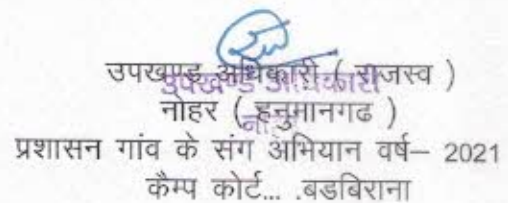 उपखण्ड अधिकारी ( राजस्व )
उपखण्ड अधिकारी
नोहर ( हनुमानगढ )
प्रशासन गांव के संग अभियान वर्ष– 2021
कैम्प कोर्ट... .बडबिराना